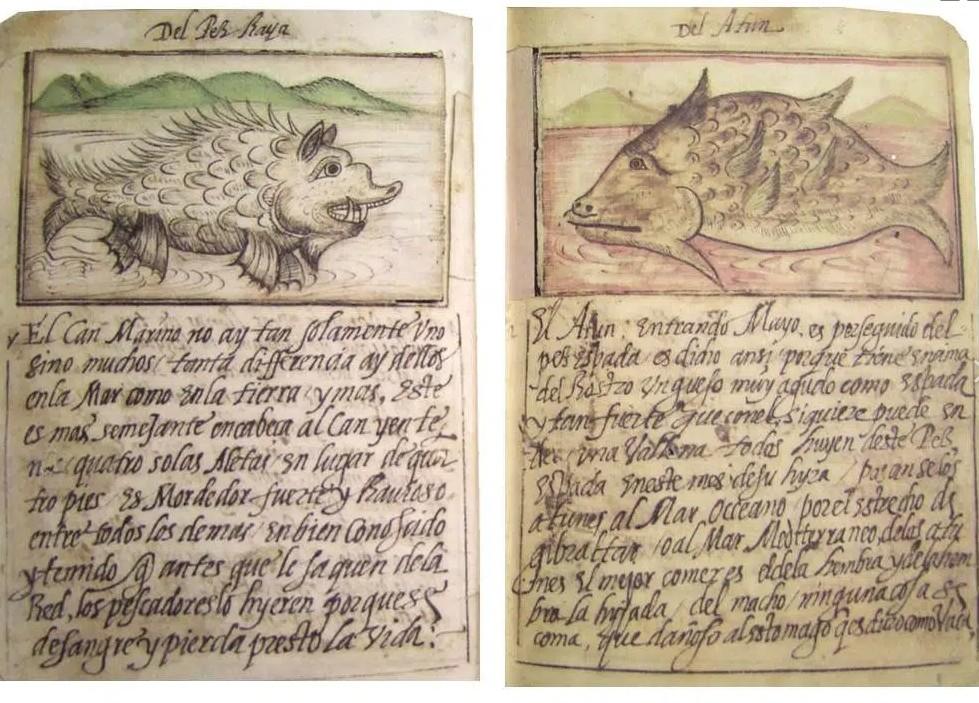 Del Pez Raya
y El Can Marino no ay tan solamente Uno
sino muchos tanta differencia ay dellos
en la Mar como en la tierra y mas, este
es mas semejante en cabeca al Can y en te
quatro solas Aletas en lugar de qua
tro pies es Mordedor fuerte y
entre todos los demas en bien Conoscido
y temido q antes que le saquen de la
Red, los pescadores lo hyeren porque se
desangre y pierda presto la Vida.
Del Atun
El Atun entrando Mayo, es perseguido del
pez espada es dicho ansi porque tiene en
del Rostro Un queso muy agudo como espada
y tan fuerte que con el siquiere puede
una Vallena todos huyen deste Pez
espada en este mes de su hyra pasanse los
atunes al Mar Occeano por el estrecho de
gibraltar o al Mar Mediterraneo, de los atu
nes El mejor comer es el de la hembra y de la hem
bra la hyjada, del macho ninguna cosa se
coma, que dañoso al estomago